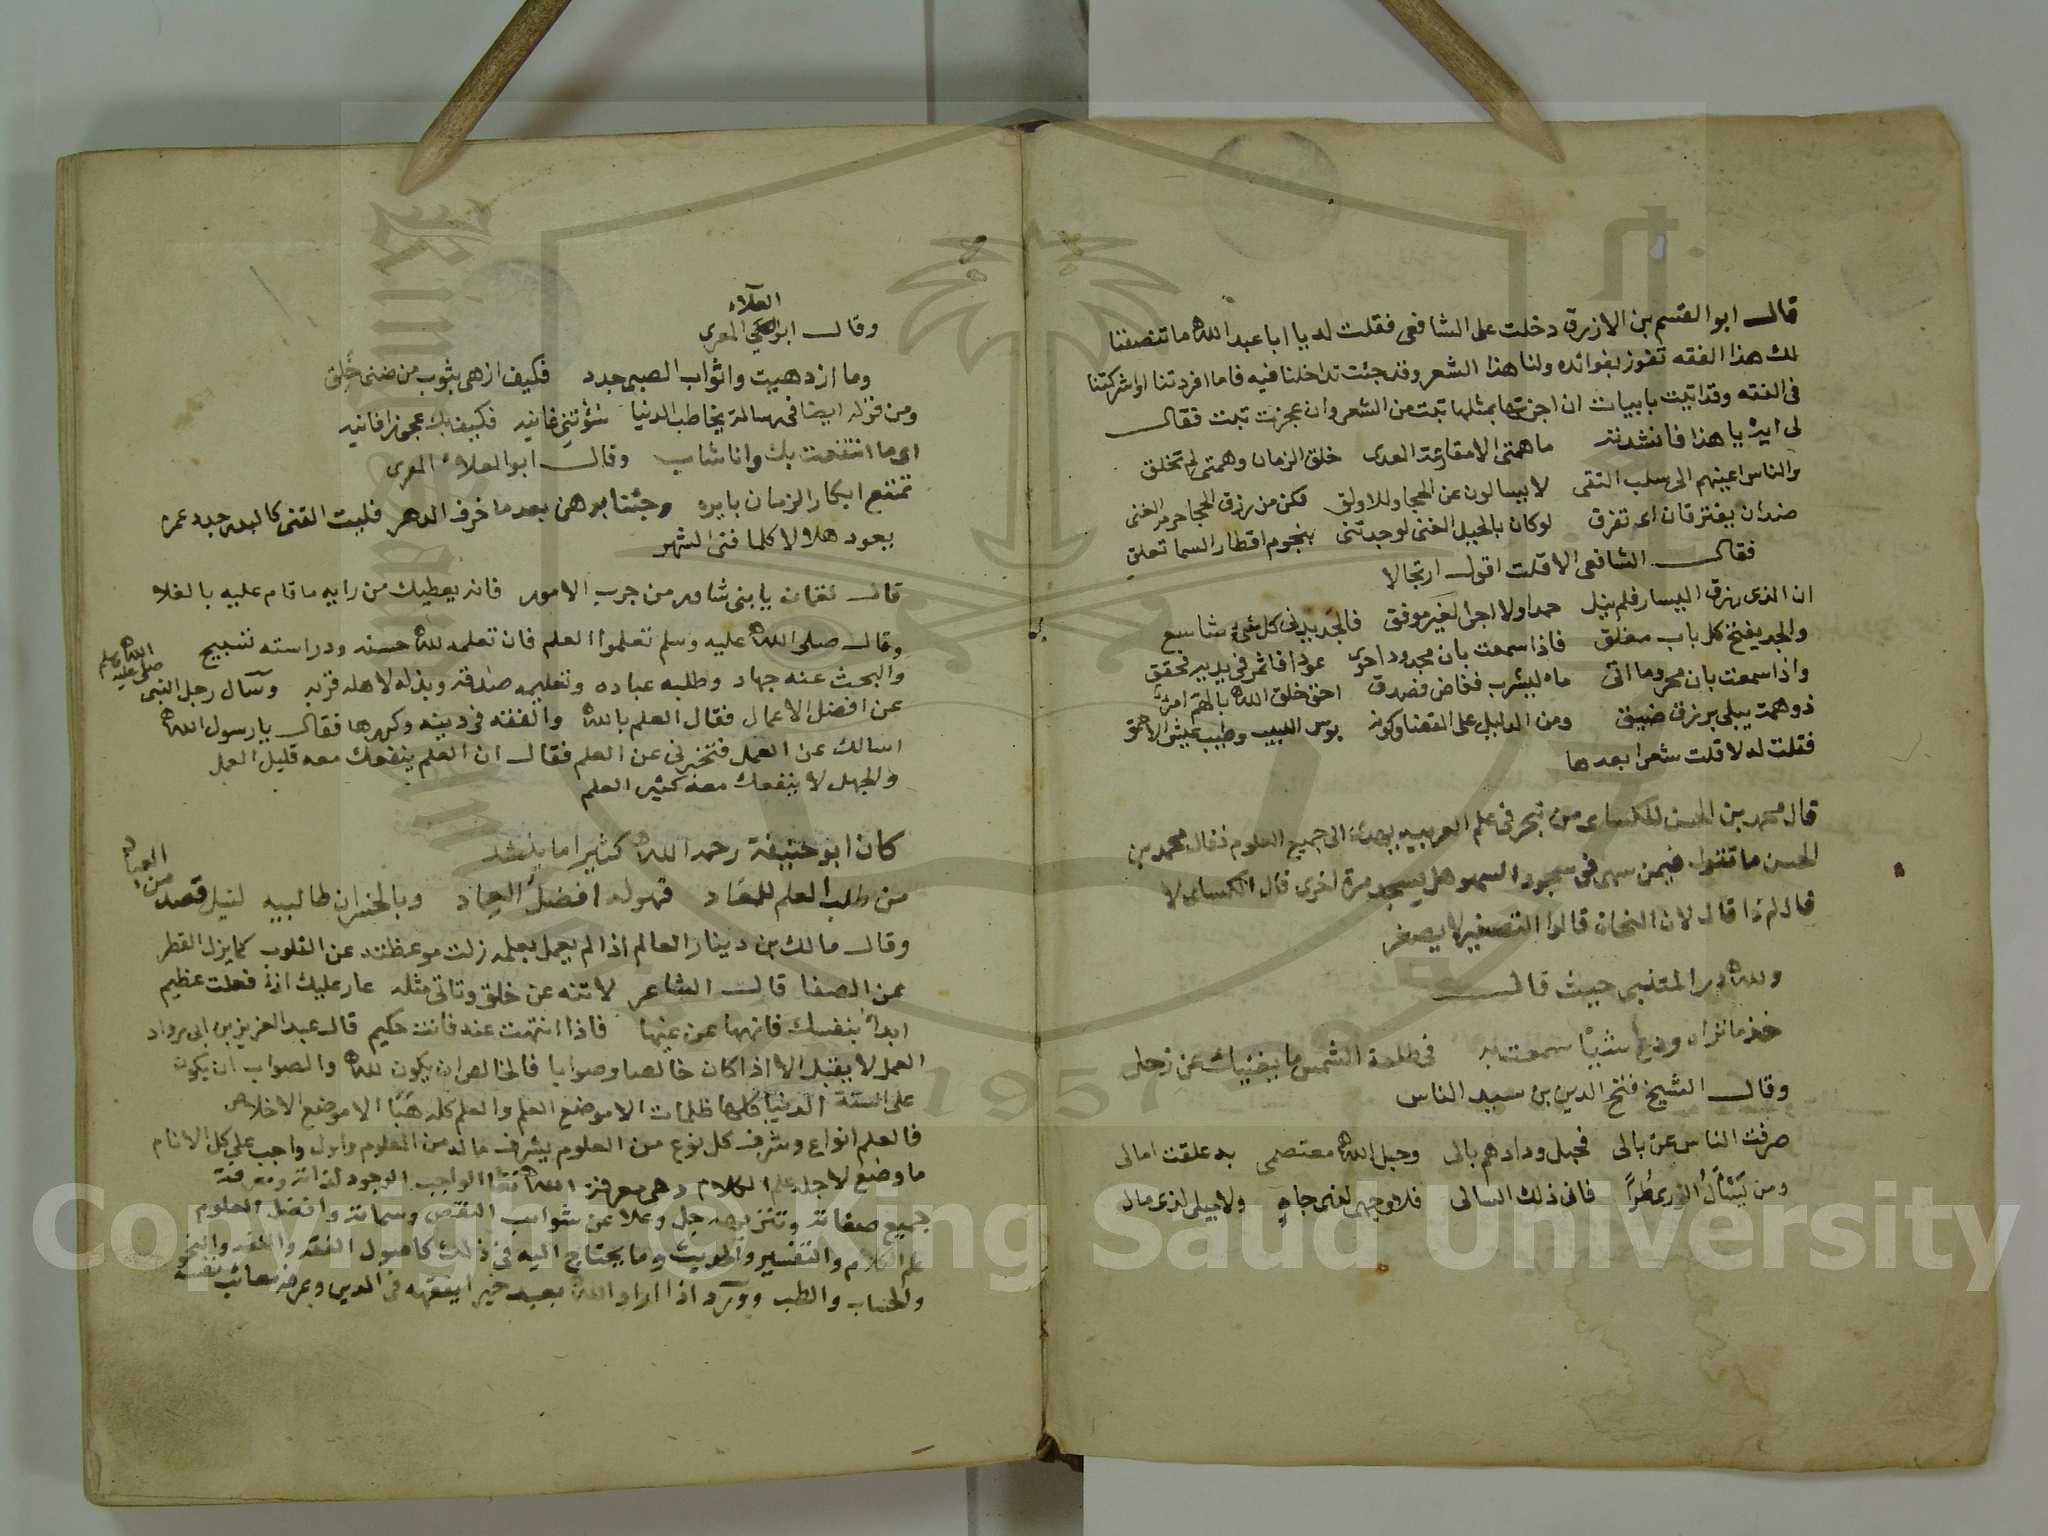 قال ابو القسم بن الازرق دخلت على الشافعى فقلت له يا ابا عبد الله ما تنصفنا
لك هذا الفقه تفوز بفوائده ولنا هذا الشعر وقد جئت تداخلنا فيه فاما افردتنا او اشركتنا
فى الفقه وقد اتيت بابيات ان اجزتها بمثلها تبت من الشعر وان عجزت تبت فقال
لى ايه يا هذا فانشدته ما همتى الا مقارعة العدى خلق الزمان وهمتى لم تخلق
والناس اعينهم الى سلب الفتى لا يسالون عن الحجا والاولق لكن من رزق الحجا حرم الغنى
ضدان يفترقان اى تفرق لو كان بالحيل الغنى لوجدتنى بنجوم اقطار السما تعلق
فقال الشافعى الا قلت اقول ارتجالا
ان الذى رزق اليسار فلم ينل حمدا ولا اجرا لغير موفق فالجد يدنى كل شىء شاسع
والجد يفتح كل باب مغلق فاذا سمعت بان مجدودا حوى عودا فاثمر فى يديه فحقق
واذا سمعت بان محروما اتى ماء ليشرب فغاض فصدق احق خلق الله بالهم امرؤ
ذو همة يبلى برزق ضيق ومن الدليل على القضا وكونه بوس اللبيب وطيب عيش الاحمق
فقلت له لا قلت شعرا بعدها
قال محمد بن الحسن للكساى من تبحر فى علم العربيه يهدى الى جميع العلوم فقال محمد بن
الحسن ما تقول فيمن سهى فى سجود السهو هل يسجد مرة اخرى قال الكساى لا
قال لم ذا قال لان النحاة قالوا التصغير لا يصغر
ولله در المتنبى حيث قال
خذ ما تراه ودع شيا سمعت به فى طلعة الشمس ما يغنيك عن زحل
وقال الشيخ فتح الدين بن سيد الناس
صرفت الناس عن بالى فحبل ودادهم بالى وحبل الله معتصمى به علقت امالى
ومن يسأل الورى طرا فانى ذلك السالى فلا وجهى لذى جاه ولا ميلى لذى مال
العلاء
وقال ابو المعرى
وما ازدهيت واثواب الصبى جدد فكيف ازهى بثوب من ضنى خلق
ومن قوله ايضا فى رسالة يخاطب الدنيا سؤتنى غانيه فكيف بك عجوزا فانيه
اى ما انتفعت بك وانا شاب وقال ابو العلاء المعرى
تمتع ابكار الزمان بايده وجئنا بوهن بعد ما خرف الدهر فليت الفتى كالبدر جدد عمره
يعود هلالا كلما فنى الشهر
قال لقمان يا بنى شاور من جرب الامور فانه يعطيك من رايه ما قام عليه بالغلا
وقال صلى الله عليه وسلم تعلموا العلم فان تعلمه لله حسنه ودراسته تسبيح
والبحث عنه جهاد وطلبه عباده وتعليمه صدقه وبذله لاهله قربه وسآل رجل النبى صلى الله عليه وسلم
عن افضل الاعمال فقال العلم بالله والفقه فى دينه وكررها فقال يا رسول الله
اسالك عن العمل فتخبرنى عن العلم فقال ان العلم ينفعك معه قليل العمل
والجهل لا ينفعك معه كثير العلم
كان ابو حنيفة رحمه الله كثيرا ما ينشد
من طلب العلم للمعاد فهو له افضل العباد وبالخسران طالبيه لنيل قصد من العباد
وقال مالك بن دينار العالم اذا لم يعمل بعلمه زلت موعظته عن القلوب كما يزل القطر
عن الصفا قال الشاعر لا تنه عن خلق وتاتى مثله عار عليك اذا فعلت عظيم
ابدأ بنفسك فانهها عن غيها فاذا انتهت عنه فانت حكيم قال عبد العزيز بن ابى رواد
العمل لا يقبل الا اذا كان خالصا وصوابا فالخالص ان يكون لله والصواب ان يكون
على السنة الدنيا كلها ظلمات الا موضع العلم والعلم كله هبا الا موضع الاخلاص
فالعلم انواع وشرف كل نوع من العلوم بشرف ماله من العلوم واول واجب على كل الانام
ما وضع لاجله علم الكلام وهى معرفة الله تعا الواجب الوجود لذاته ومعرفة
جميع صفاته وتنزيهه جل وعلا عن شوايب النقص وسماته وافضل العلوم
علم الكلام والتفسير والحديث وما يحتاج اليه فى ذلك كاصول الفقه والفقه والنحو
والحساب والطب وورد اذا اراد الله بعبد خيرا يفقهه فى الدين وبصره معائب نفسه
Copyright © King Saud University
1957